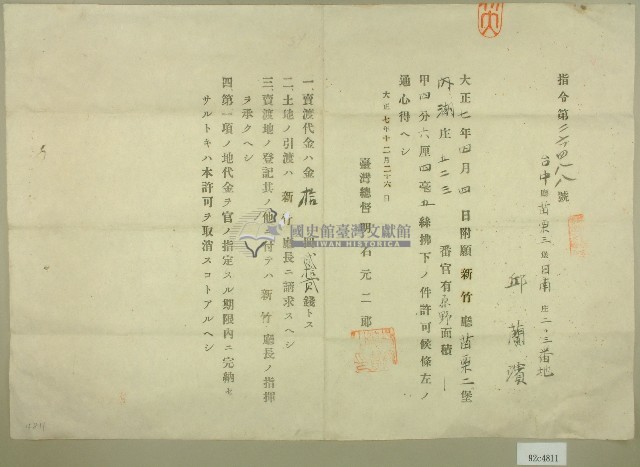 指令第二六四八八號
台中廳苗栗三堡日南庄二二三番地
邱蘭濱
大正七年四月四日附願新竹廳苗栗二堡
內湖庄 五二三 番官有原野面積
甲四分六厘四毫五絲拂下ノ件許可候條左ノ
通心得ヘシ
大正七年十二月二十六日
臺灣總督明石元二郎
一、賣渡代金ハ金拾 圓 貳拾貳錢トス
二、土地ノ引渡ハ新竹廳長ニ請求スヘシ
三、賣渡地ノ登記其ノ他 付テハ新竹廳長ノ指揮
ヲ承クヘシ
四、第一項ノ地代金ヲ官ノ指定スル期限內ニ完納セ
サルトキハ本許可ヲ取消スコトアルヘシ
國史館臺灣文獻館
TAIWAN HISTORICA
92c4811